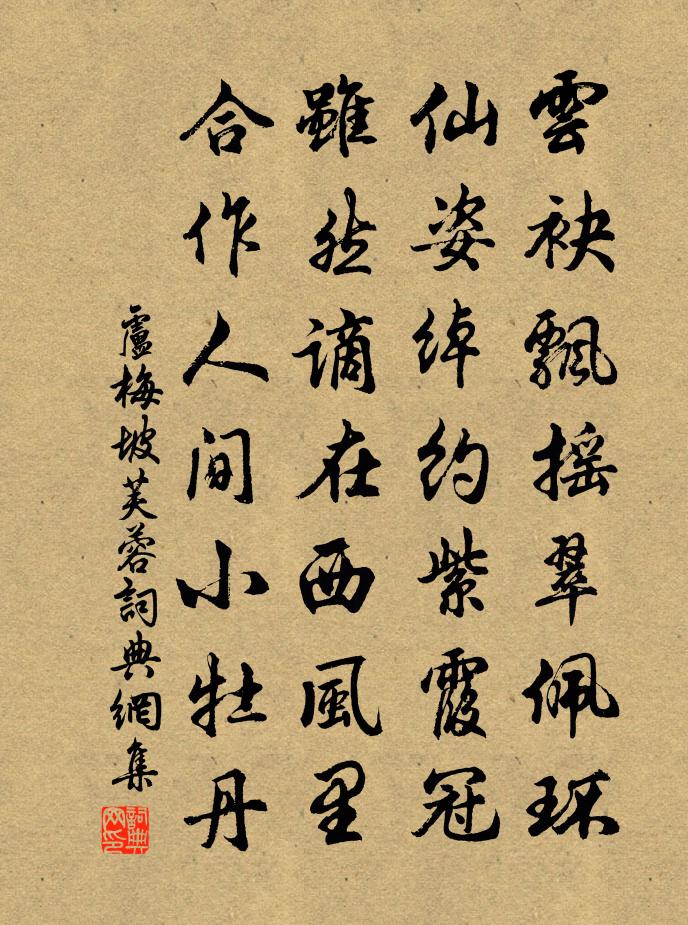 雲袂飄摇翠佩环
仙姿绰约紫霞冠
雖然谪在西風里
合作人间小牡丹
盧梅坡芙蓉詞典網集
詞典网印